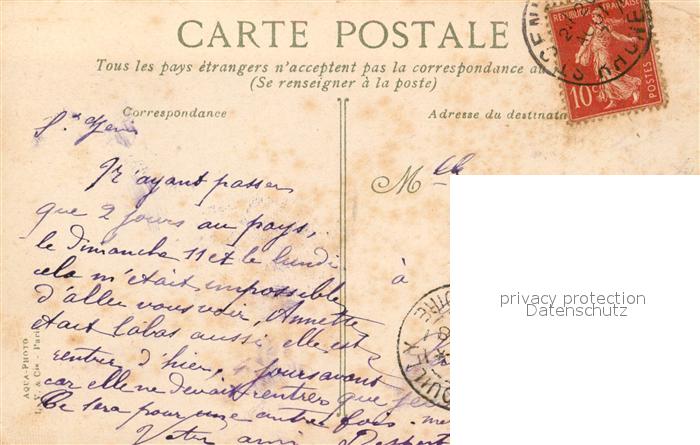 CARTE POSTALE
Tous les pays étrangers n'acceptent pas la correspondance au
(Se renseigner à la poste)
Correspondance
Adresse du destinata
RÉPUBLIQUE FRANÇAISE
10c
POSTES
RHONE
St Genis
M lle
N'ayant passer
que 2 jours au pays,
le dimanche 11 et le lundi
cela m'était impossible
d'aller vous voir, Annette
était labas aussi, elle est
rentrer d'hier, jours avant
car elle ne devait rentrer que
Ce sera pour une autre fois.
Votre
à
privacy protection
Datenschutz
AQUA-PHOTO
L. V. & Cie - Paris